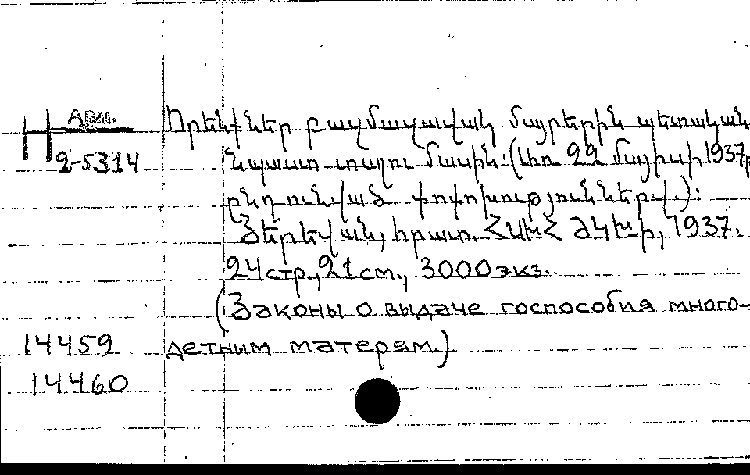 Арм.
Н 2-5314
Որենքներ բազմազավակ մայրերին պետական
նպաստ տալու մասին: (
22 մայիսի 1937
ընդունված փոփոխություններով.):
Յերեվան, հրատ. ՀԽՍՀ ԺԿԽ-ի, 1937.
24 стр., 21 см., 3000 экз.
(Законы о выдаче госпособия много-
14459 детным матерям.)
14460